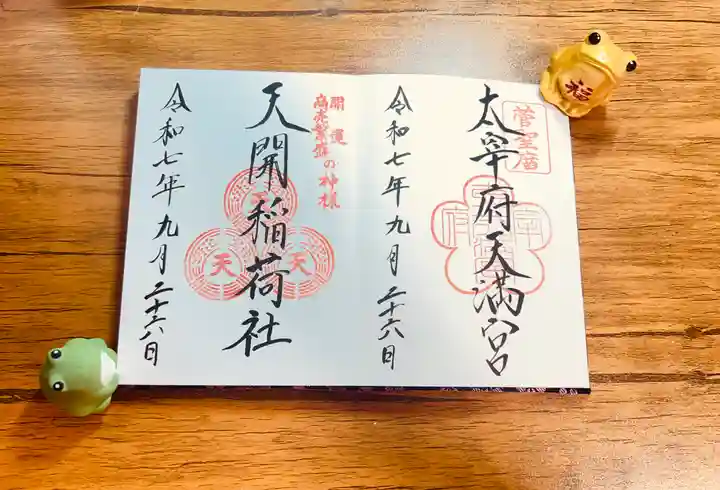 菅聖廟
太宰府天満宮
令和七年九月二十六日
開運
商売繁盛の神様
天開稲荷社
天
天
令和七年九月二十六日
福